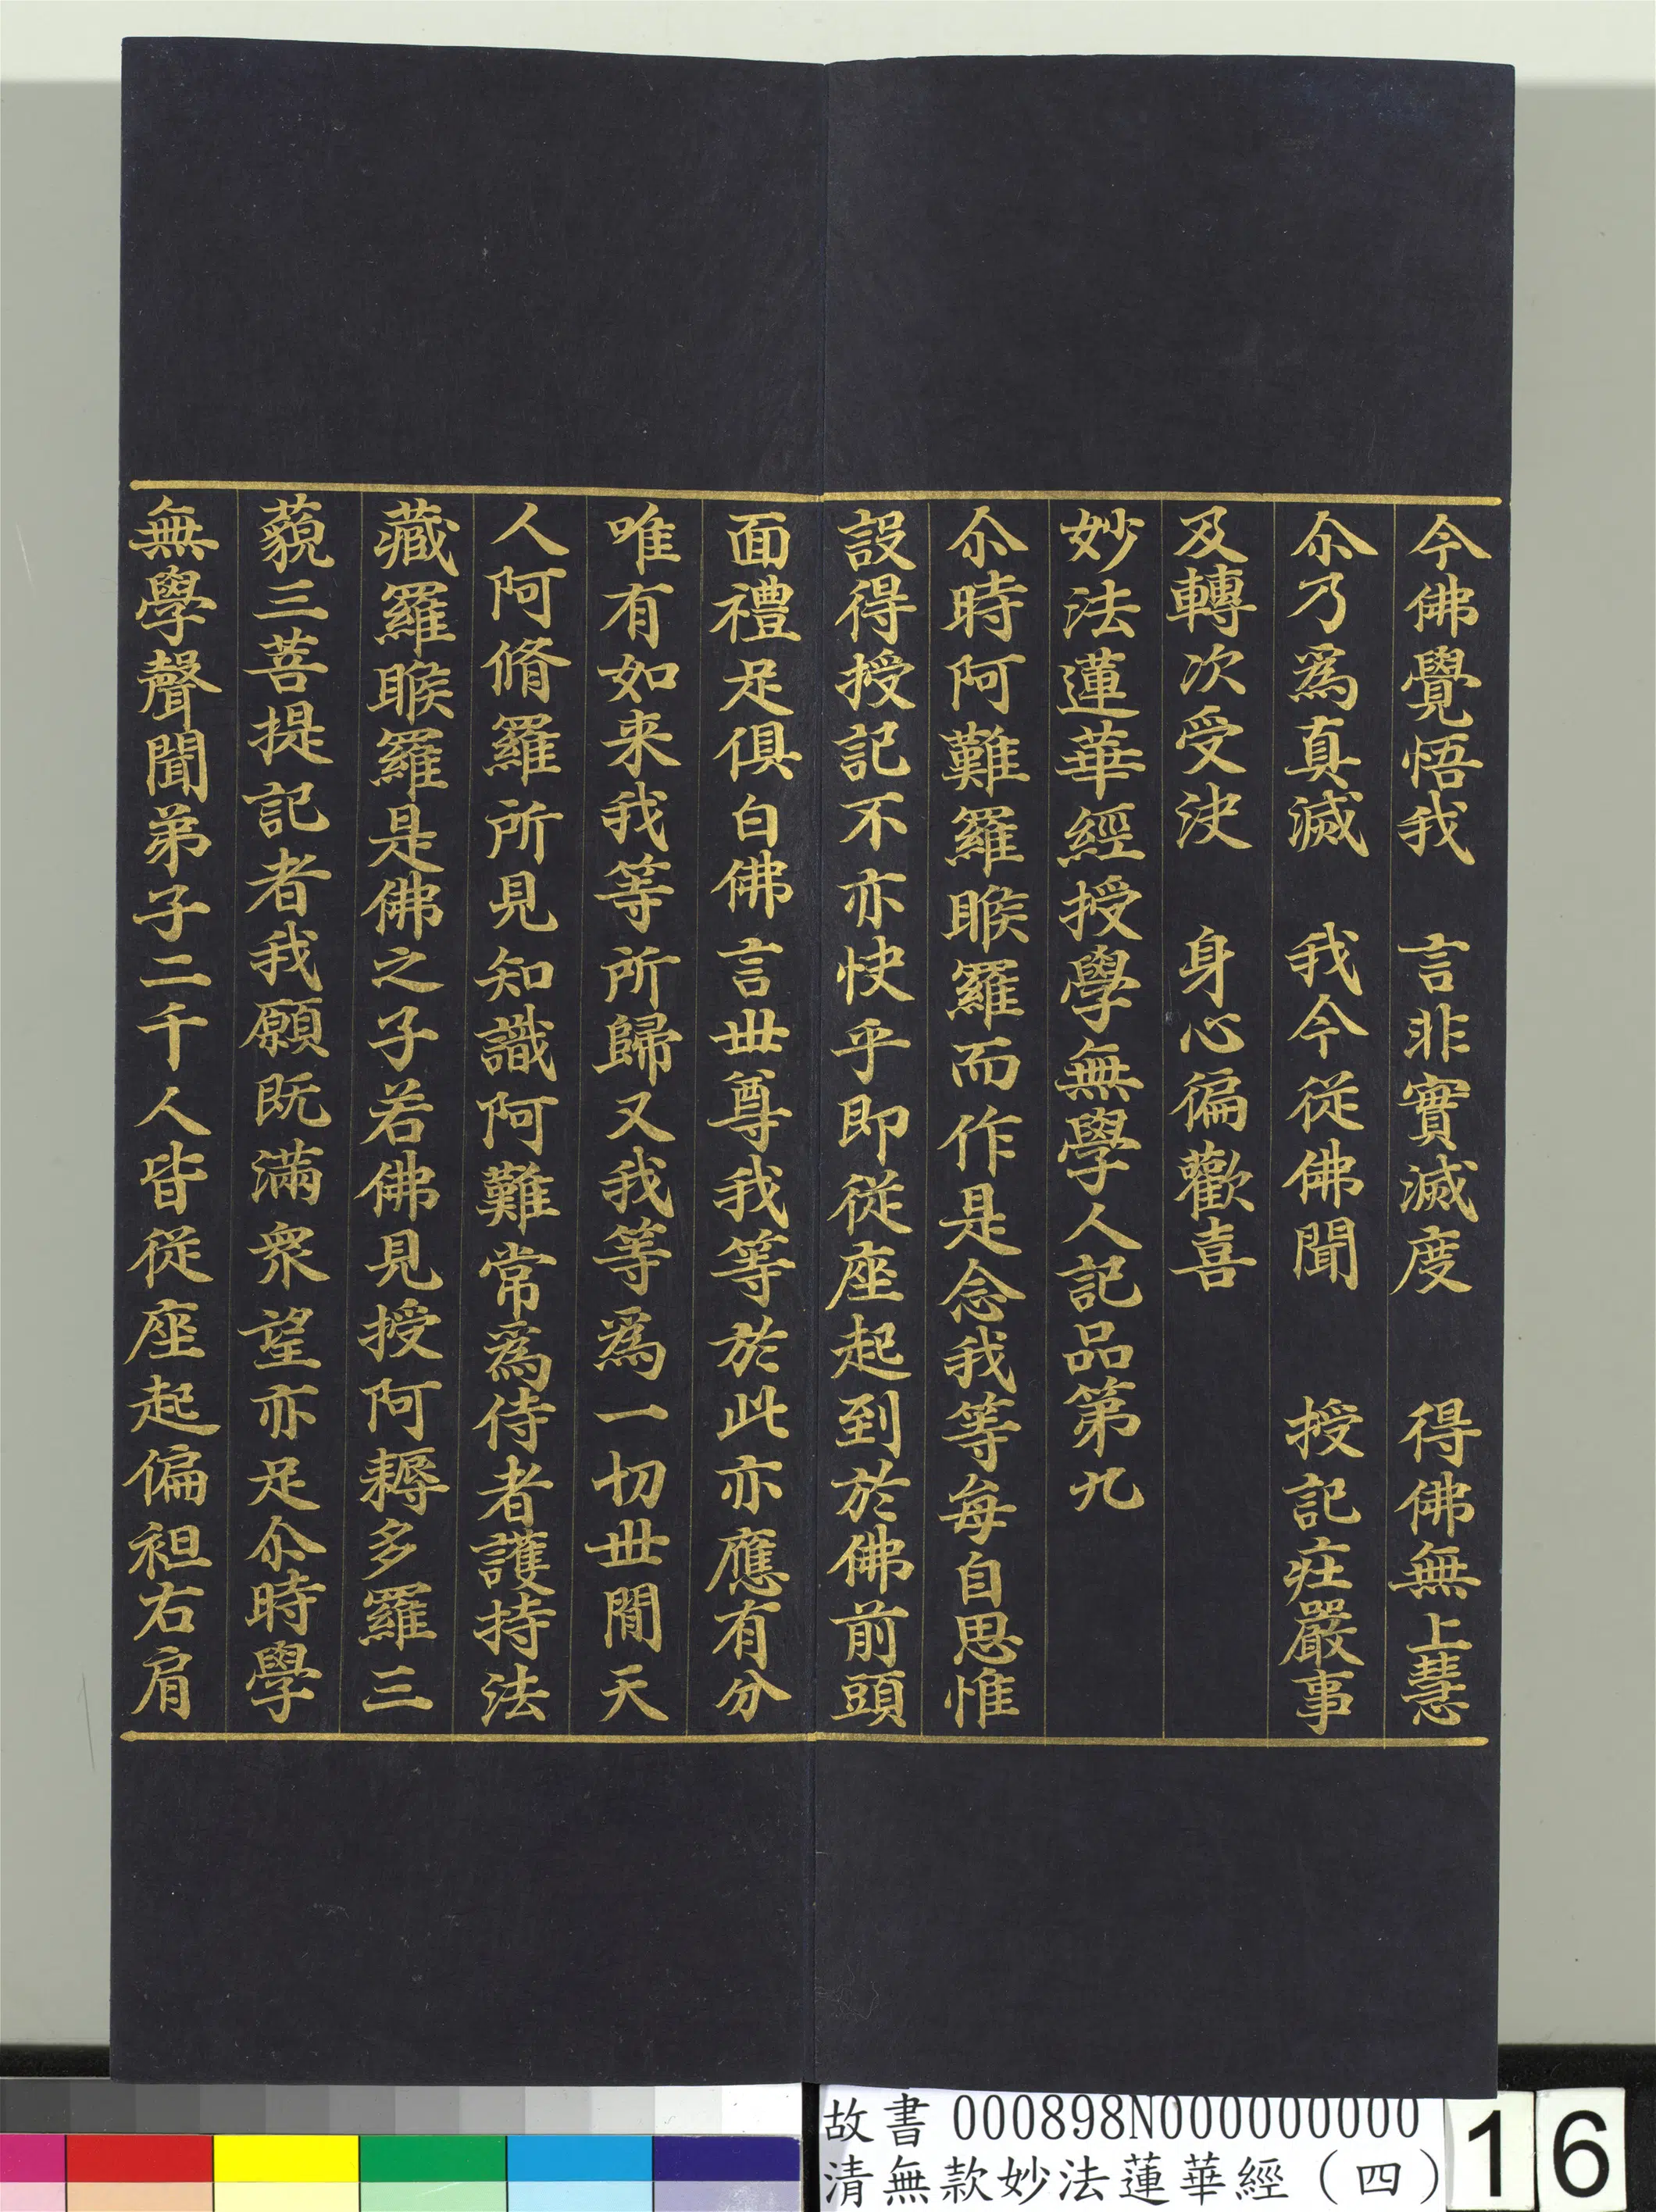 今佛覺悟我　言非實滅度　得佛無上慧
尒乃為真滅　我今從佛聞　授記庄嚴事
及轉次受決　身心徧歡喜
妙法蓮華經授學無學人記品第九
尒時阿難羅睺羅而作是念我等每自思惟
設得授記不亦快乎即從座起到於佛前頭
面禮足俱白佛言世尊我等於此亦應有分
唯有如来我等所歸又我等為一切世間天
人阿脩羅所見知識阿難常為侍者護持法
藏羅睺羅是佛之子若佛見授阿耨多羅三
藐三菩提記者我願既滿衆望亦足尒時學
無學聲聞弟子二千人皆從座起偏袒右肩
故書 000898N000000000
清無款妙法蓮華經（四）
16